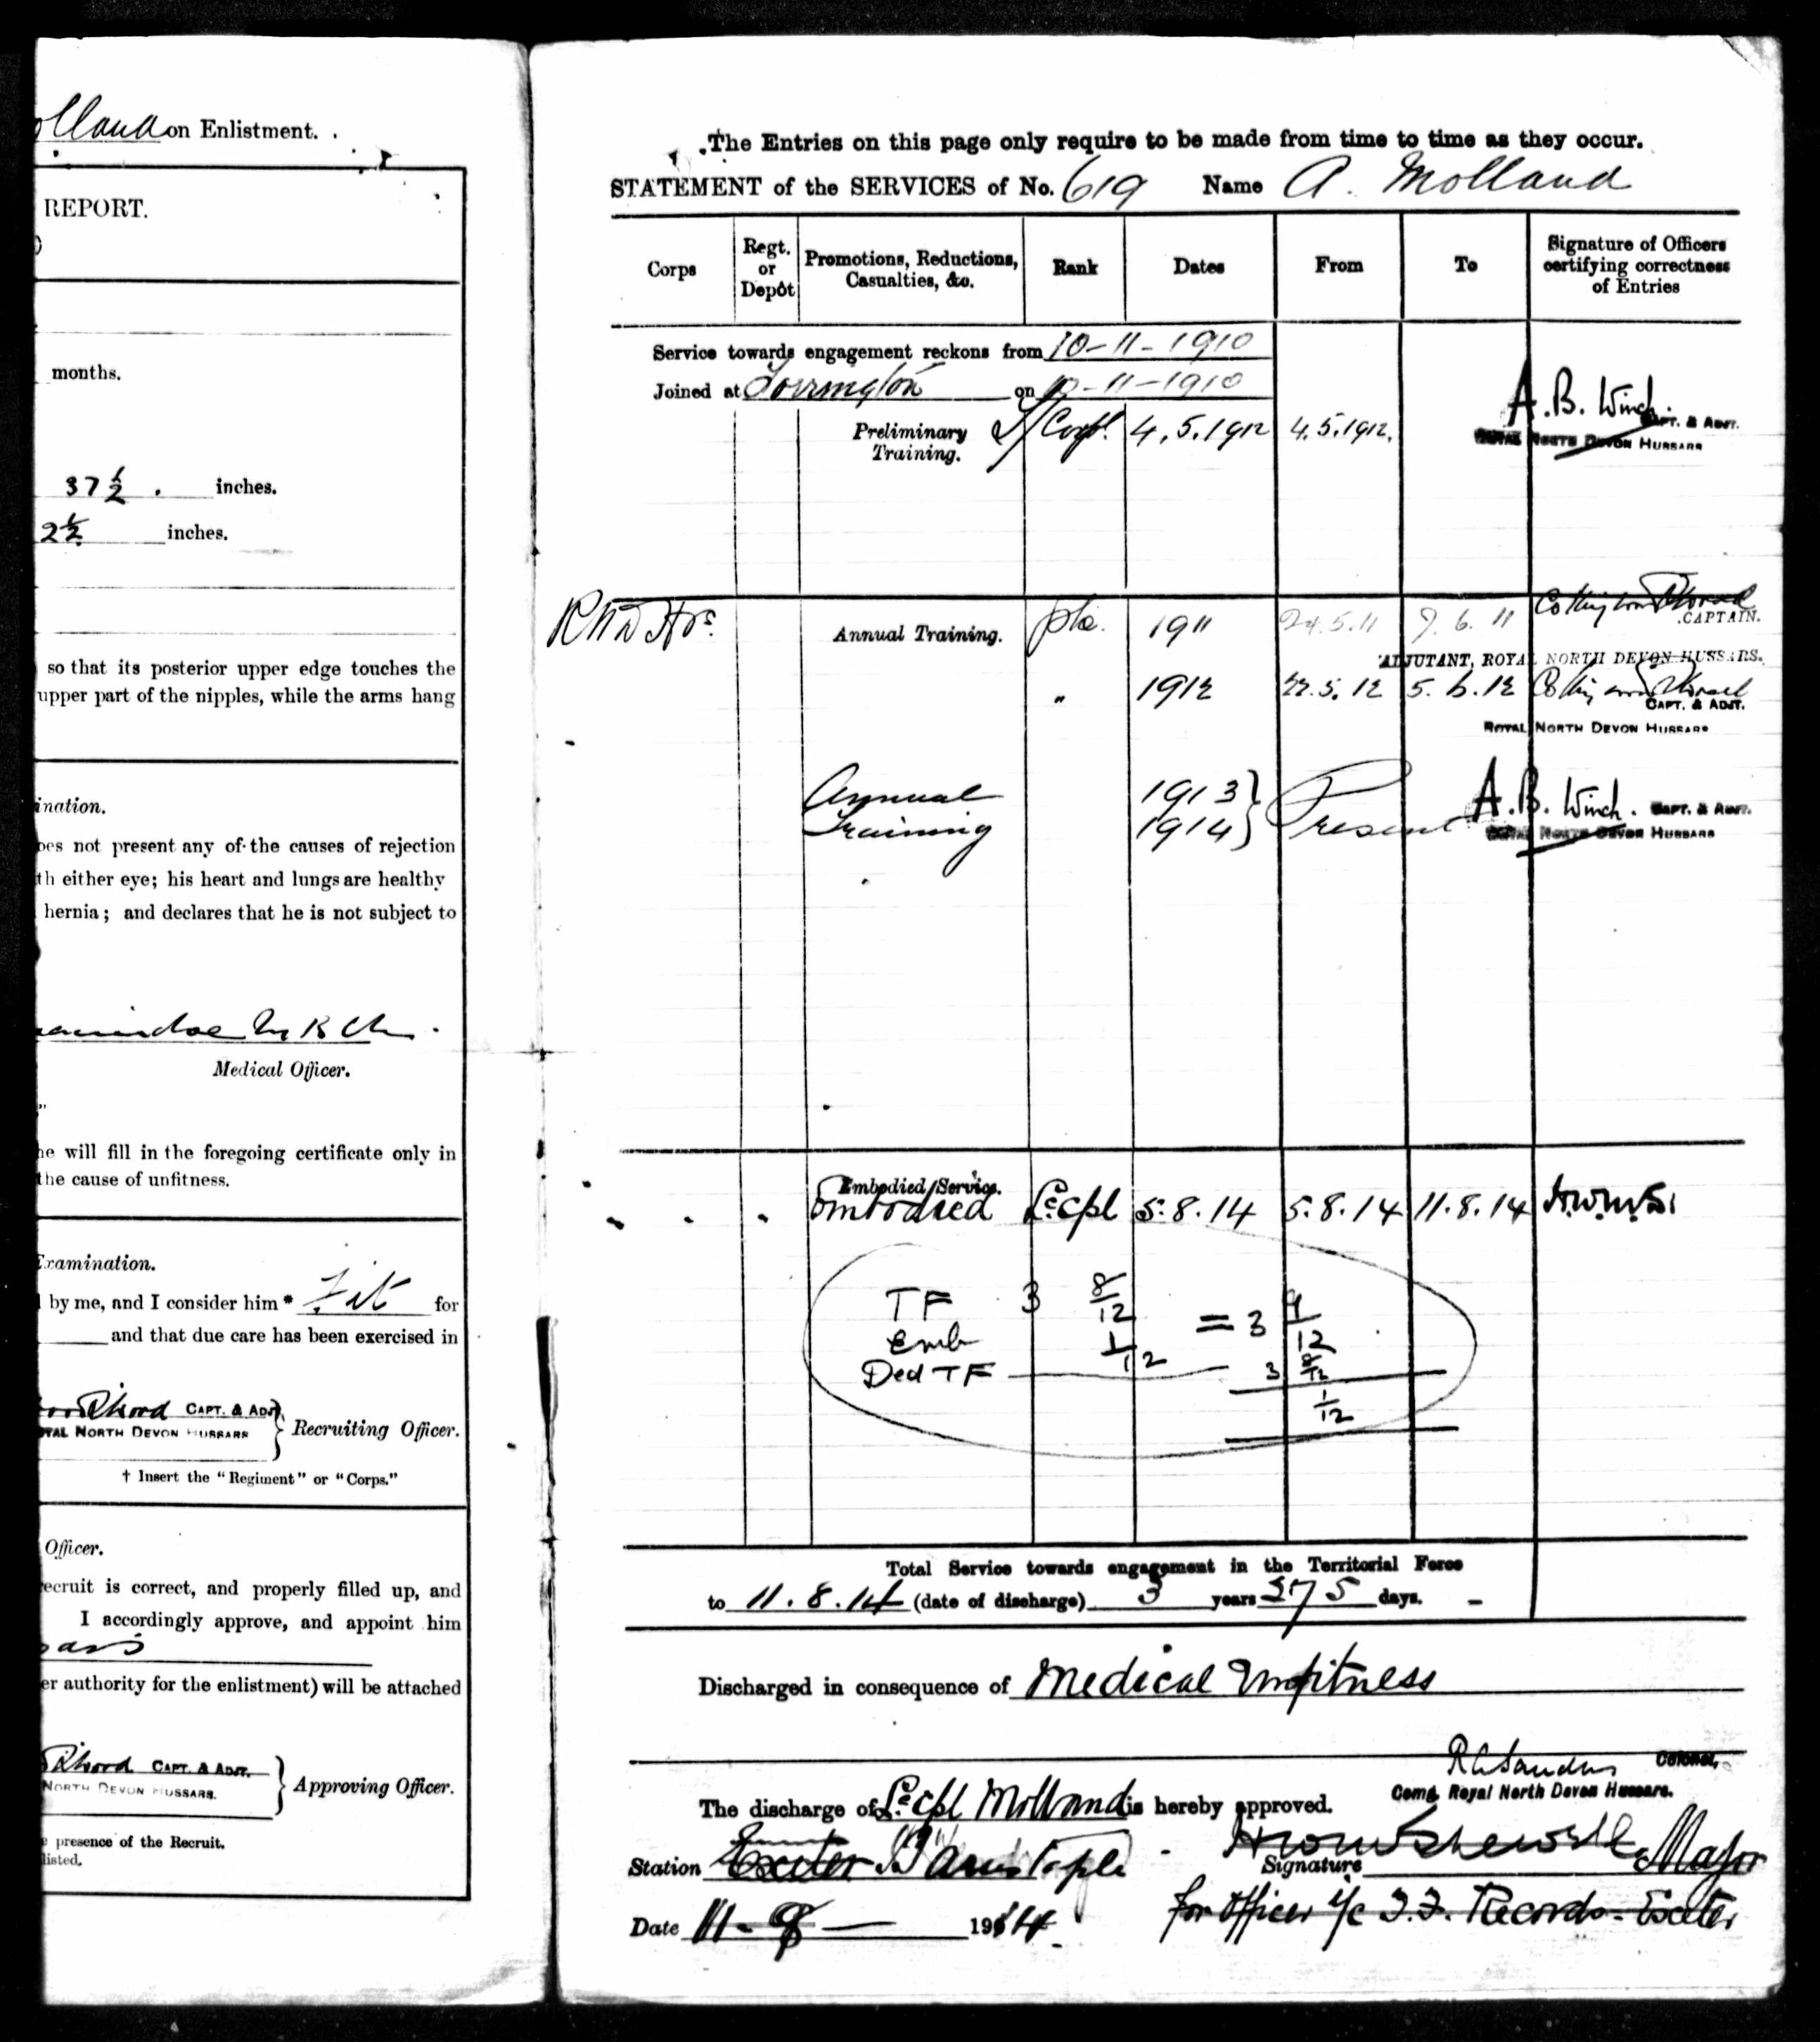 olland on Enlistment. .
REPORT.
months.
37½ . inches.
2½ inches.
so that its posterior upper edge touches the
upper part of the nipples, while the arms hang
ination.
oes not present any of the causes of rejection
th either eye; his heart and lungs are healthy
hernia; and declares that he is not subject to
Medical Officer.
he will fill in the foregoing certificate only in
the cause of unfitness.
Examination.
by me, and I consider him * Fit for
and that due care has been exercised in
CAPT. & ADJT.
ROYAL NORTH DEVON HUSSARS } Recruiting Officer.
† Insert the "Regiment" or "Corps."
Officer.
ecruit is correct, and properly filled up, and
I accordingly approve, and appoint him
sars
er authority for the enlistment) will be attached
CAPT. & ADJT.
NORTH DEVON HUSSARS. } Approving Officer.
presence of the Recruit.
listed.
The Entries on this page only require to be made from time to time as they occur.
STATEMENT of the SERVICES of No. 619 Name A. Molland
Corps Regt. or Depôt Promotions, Reductions, Casualties, &c. Rank Dates From To Signature of Officers certifying correctness of Entries
Service towards engagement reckons from 10-11-1910
Joined at Torrington on 10-11-1910
Preliminary Training. L/Corpl. 4.5.1912 4.5.1912. A.B. Winch. CAPT. & ADJT.
ROYAL NORTH DEVON HUSSARS
R N D Hrs. Annual Training. pte. 1911 24.5.11 7.6.11 CAPTAIN.
ADJUTANT, ROYAL NORTH DEVON HUSSARS.
" 1912 22.5.12 5.6.12 CAPT. & ADJT.
ROYAL NORTH DEVON HUSSARS
Annual Training 1913 } 1914 } Present A.B. Winch. CAPT. & ADJT.
ROYAL NORTH DEVON HUSSARS
Embodied Service.
Embodied Lce cpl 5.8.14 5.8.14 11.8.14 H.W.M.S.
TF 3 8/12 = 3 9/12
Emb 1/12
Ded TF 3 8/12
1/12
Total Service towards engagement in the Territorial Force
to 11.8.14 (date of discharge) 3 years 275 days.
Discharged in consequence of Medical Unfitness
Colonel,
Comg. Royal North Devon Hussars.
The discharge of Lce cpl Molland is hereby approved.
Station Exeter Barnstaple
Signature Major
Date 11-8- 1914
for Officer i/c T.F. Records. Exeter